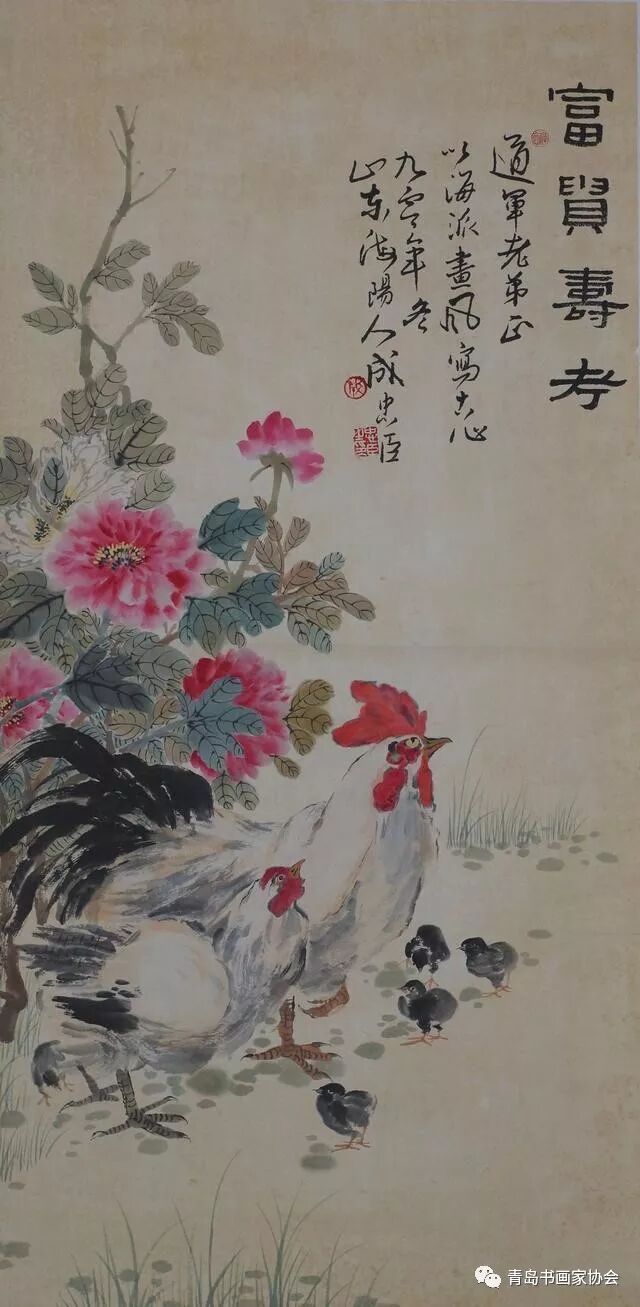 富貴壽考
道軍老弟正
以海派畫風寫吉心
九零年冬
山东海陽人成忠臣
青岛书画家协会